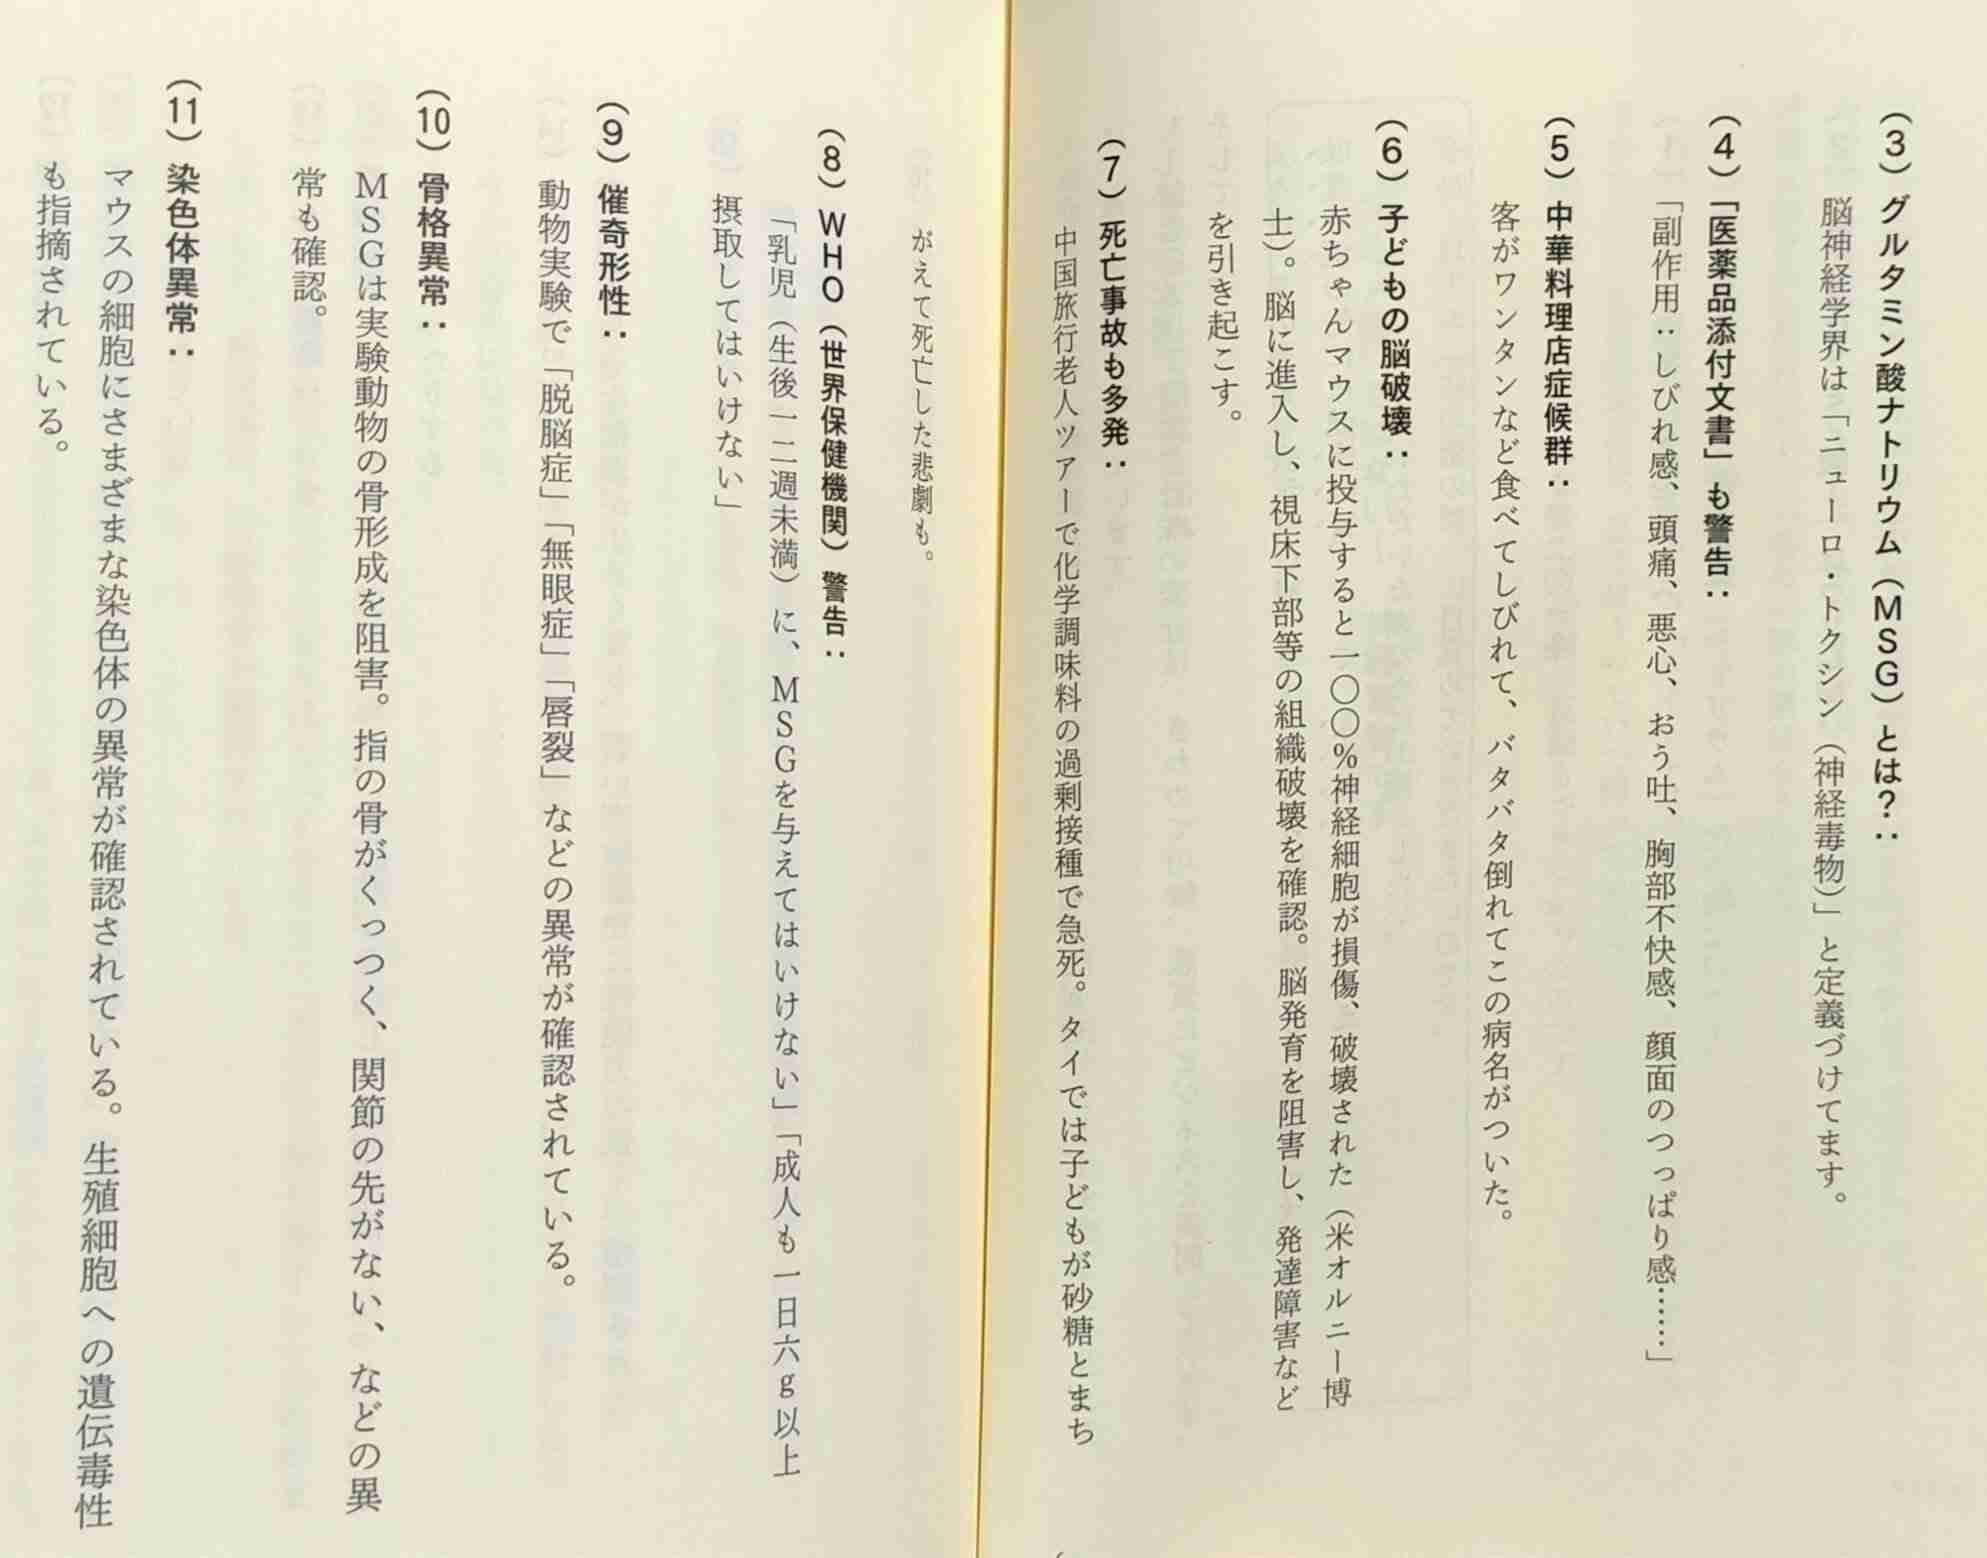 (3) グルタミン酸ナトリウム(MSG)とは?:
脳神経学界は「ニューロ・トクシン(神経毒物)」と定義づけてます。
(4)「医薬品添付文書」も警告:
「副作用:しびれ感、頭痛、悪心、おう吐、胸部不快感、顔面のつっぱり感……」
(5) 中華料理店症候群:
客がワンタンなど食べてしびれて、バタバタ倒れてこの病名がついた。
(6) 子どもの脳破壊:
赤ちゃんマウスに投与すると一〇〇%神経細胞が損傷、破壊された(米オルニー博
士)。脳に進入し、視床下部等の組織破壊を確認。脳発育を阻害し、発達障害など
を引き起こす。
(7) 死亡事故も多発:
中国旅行老人ツアーで化学調味料の過剰接種で急死。タイでは子どもが砂糖とまち
がえて死亡した悲劇も。
(8) WHO(世界保健機関)警告:
「乳児(生後一二週未満)に、MSGを与えてはいけない」「成人も一日六g以上
摂取してはいけない」
(9) 催奇形性:
動物実験で「脱脳症」「無眼症」「唇裂」などの異常が確認されている。
(10) 骨格異常:
MSGは実験動物の骨形成を阻害。指の骨がくっつく、関節の先がない、などの異
常も確認。
(11) 染色体異常:
マウスの細胞にさまざまな染色体の異常が確認されている。生殖細胞への遺伝毒性
も指摘されている。